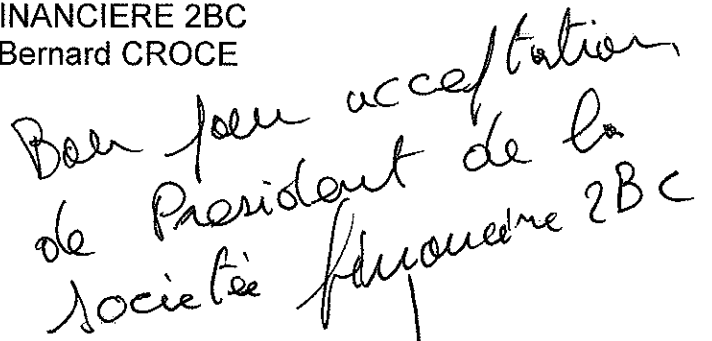 INANCIERE 2BC
Bernard CROCE
Bon pour acceptation
de President de la
societée financiere 2BC